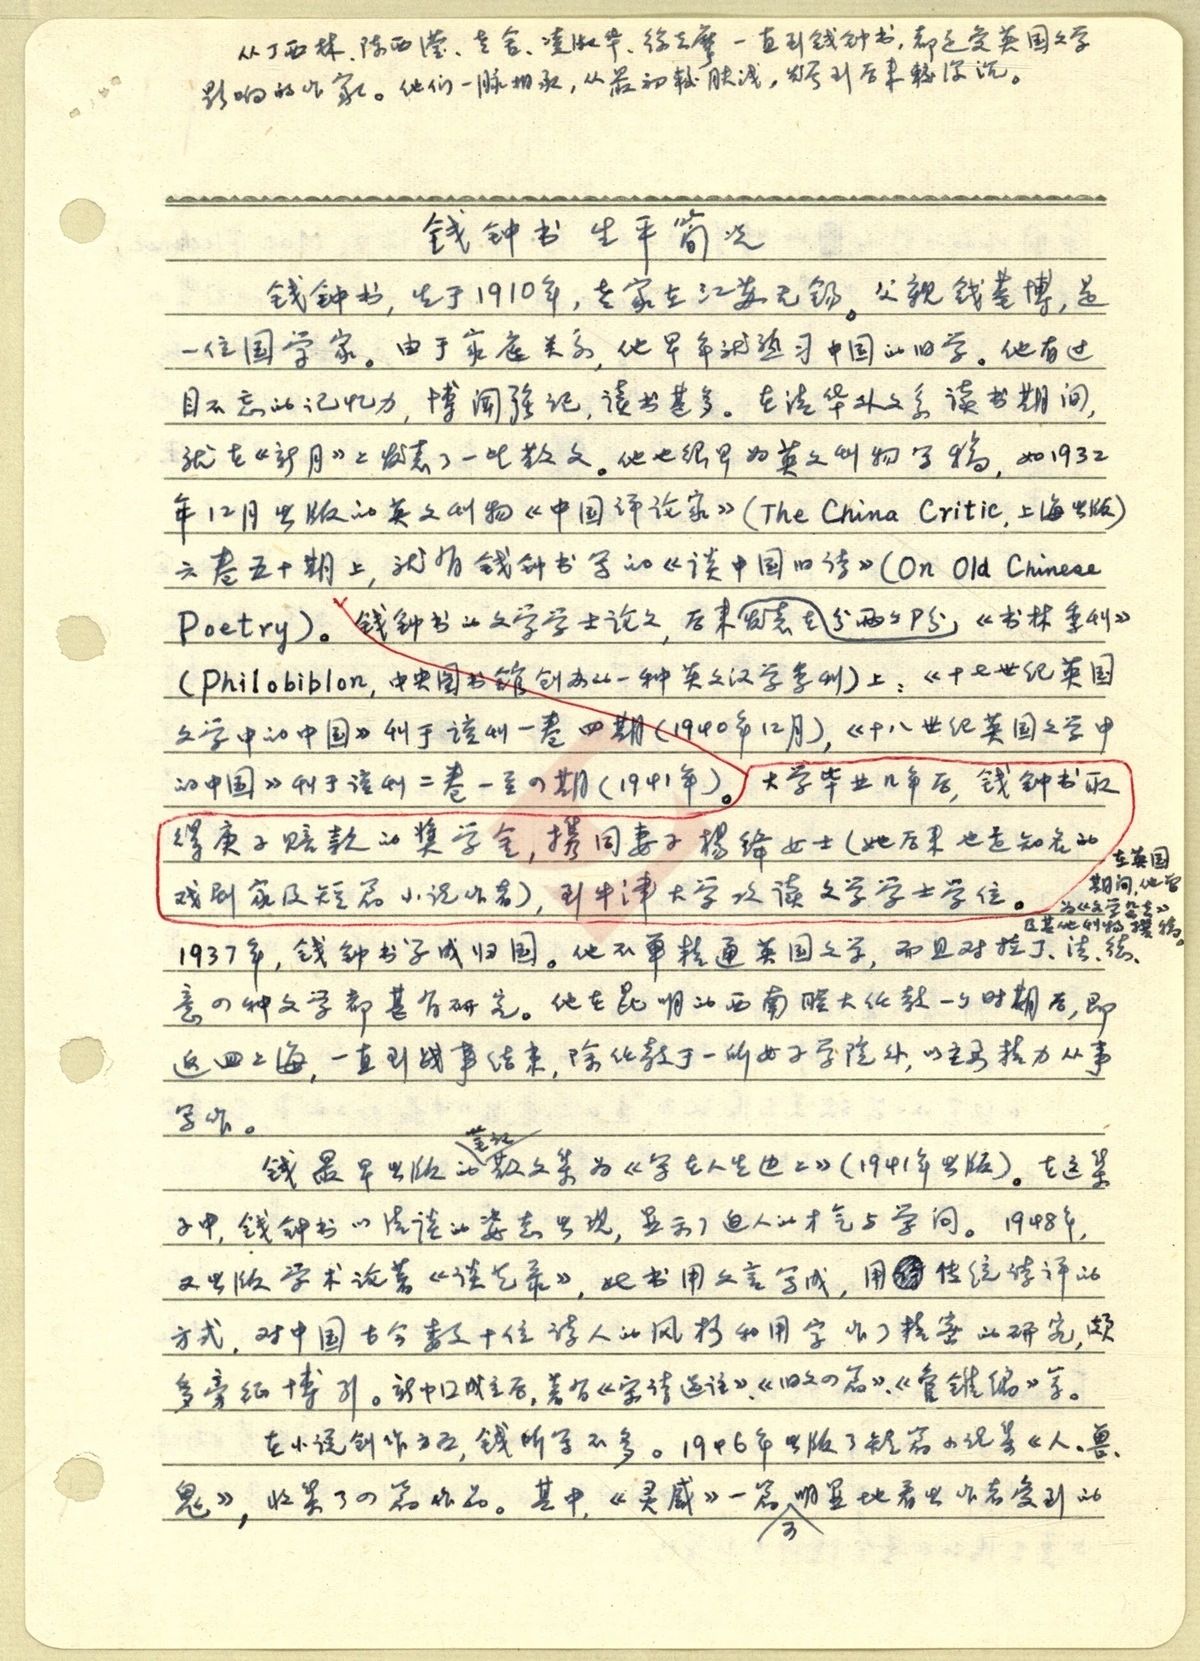 从丁西林、陈西滢、老舍、凌淑华、徐志摩一直到钱钟书，都是受英国文学
影响的作家。他们一脉相承，从最初较肤浅，发号到后来较深沉。
钱钟书生平简况
钱钟书，生于1910年，老家在江苏无锡。父亲钱基博，是
一位国学家。由于家庭关系，他早年就熟习中国的旧学。他有过
目不忘的记忆力，博闻强记，读书甚多。在清华外文系读书期间，
就在《新月》上发表了一些散文。他也很早为英文刊物写稿，如1932
年12月出版的英文刊物《中国评论家》(The China Critic,上海出版)
六卷五十期上，就有钱钟书写的《谈中国旧诗》(On Old Chinese
Poetry)。钱钟书的文学学士论文，后来发表在分两部分，《书林季刊》
(Philobiblon,中央图书馆创办的一种英文汉学季刊)上：《十七世纪英国
文学中的中国》刊于该刊一卷四期(1940年12月)，《十八世纪英国文学中
的中国》刊于该刊二卷一至四期(1941年)。大学毕业几年后，钱钟书取
得庚子赔款的奖学金，携同妻子杨绛女士(她后来也是知名的
戏剧家及短篇小说作者)，到牛津大学攻读文学学士学位。
在英国
期间，他曾
为《文学杂志》
及其他刊物撰稿。
1937年，钱钟书学成归国。他不单精通英国文学，而且对拉丁、法、德、
意四种文学都甚有研究。他在昆明的西南联大任教一个时期后，即
返回上海，一直到战事结束，除任教于一所女子学院外，以主要精力从事
写作。
笔记
钱最早出版的散文集为《写在人生边上》(1941年出版)。在这集
子中，钱钟书以清谈的姿态出现，显示了迫人的才气与学问。1948年，
又出版学术论著《谈艺录》，此书用文言写成，用传统诗评的
方式，对中国古今数十位诗人的风格和用字作了精密的研究，颇
多旁征博引。新中囗成立后，著有《宋诗选注》、《旧文四篇》、《管锥编》等。
在小说创作方面，钱所写不多。1946年出版了短篇小说集《人、兽、
鬼》，收集了四篇作品。其中，《灵感》一篇明显地看出作者受到的
可